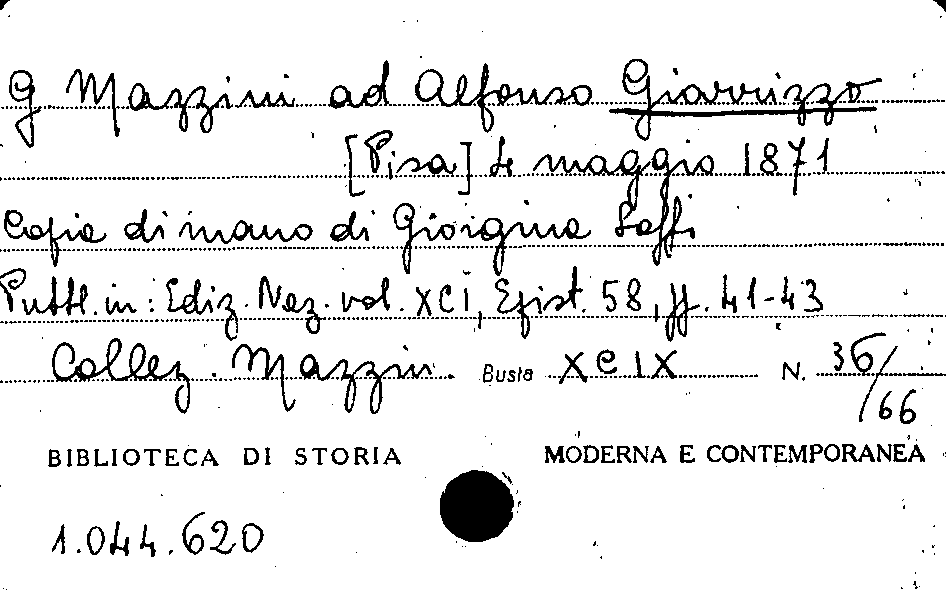 G Mazzini ad Alfonso Giarrizzo
[Pisa] 4 maggio 1871
Copia di mano di Giorgina Saffi
Pubbl. in: Ediz. Naz. vol. XCI, Epist. 58, pp. 41-43
Collez. Mazzini. Busta XCIX N. 36/66
BIBLIOTECA DI STORIA MODERNA E CONTEMPORANEA
1.044.620